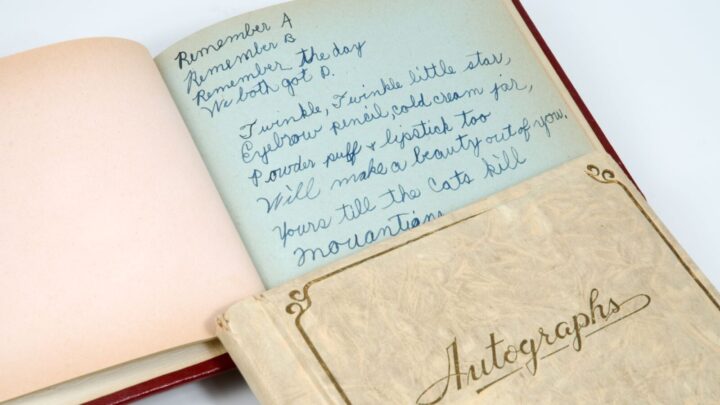 Remember A
Remember B
Remember the day
We both got D.
Twinkle, Twinkle little star,
Eyebrow pencil, cold cream jar,
Powder puff & lipstick too
Will make a beauty out of you.
Yours till the Cats kill
Mouantians
Autographs